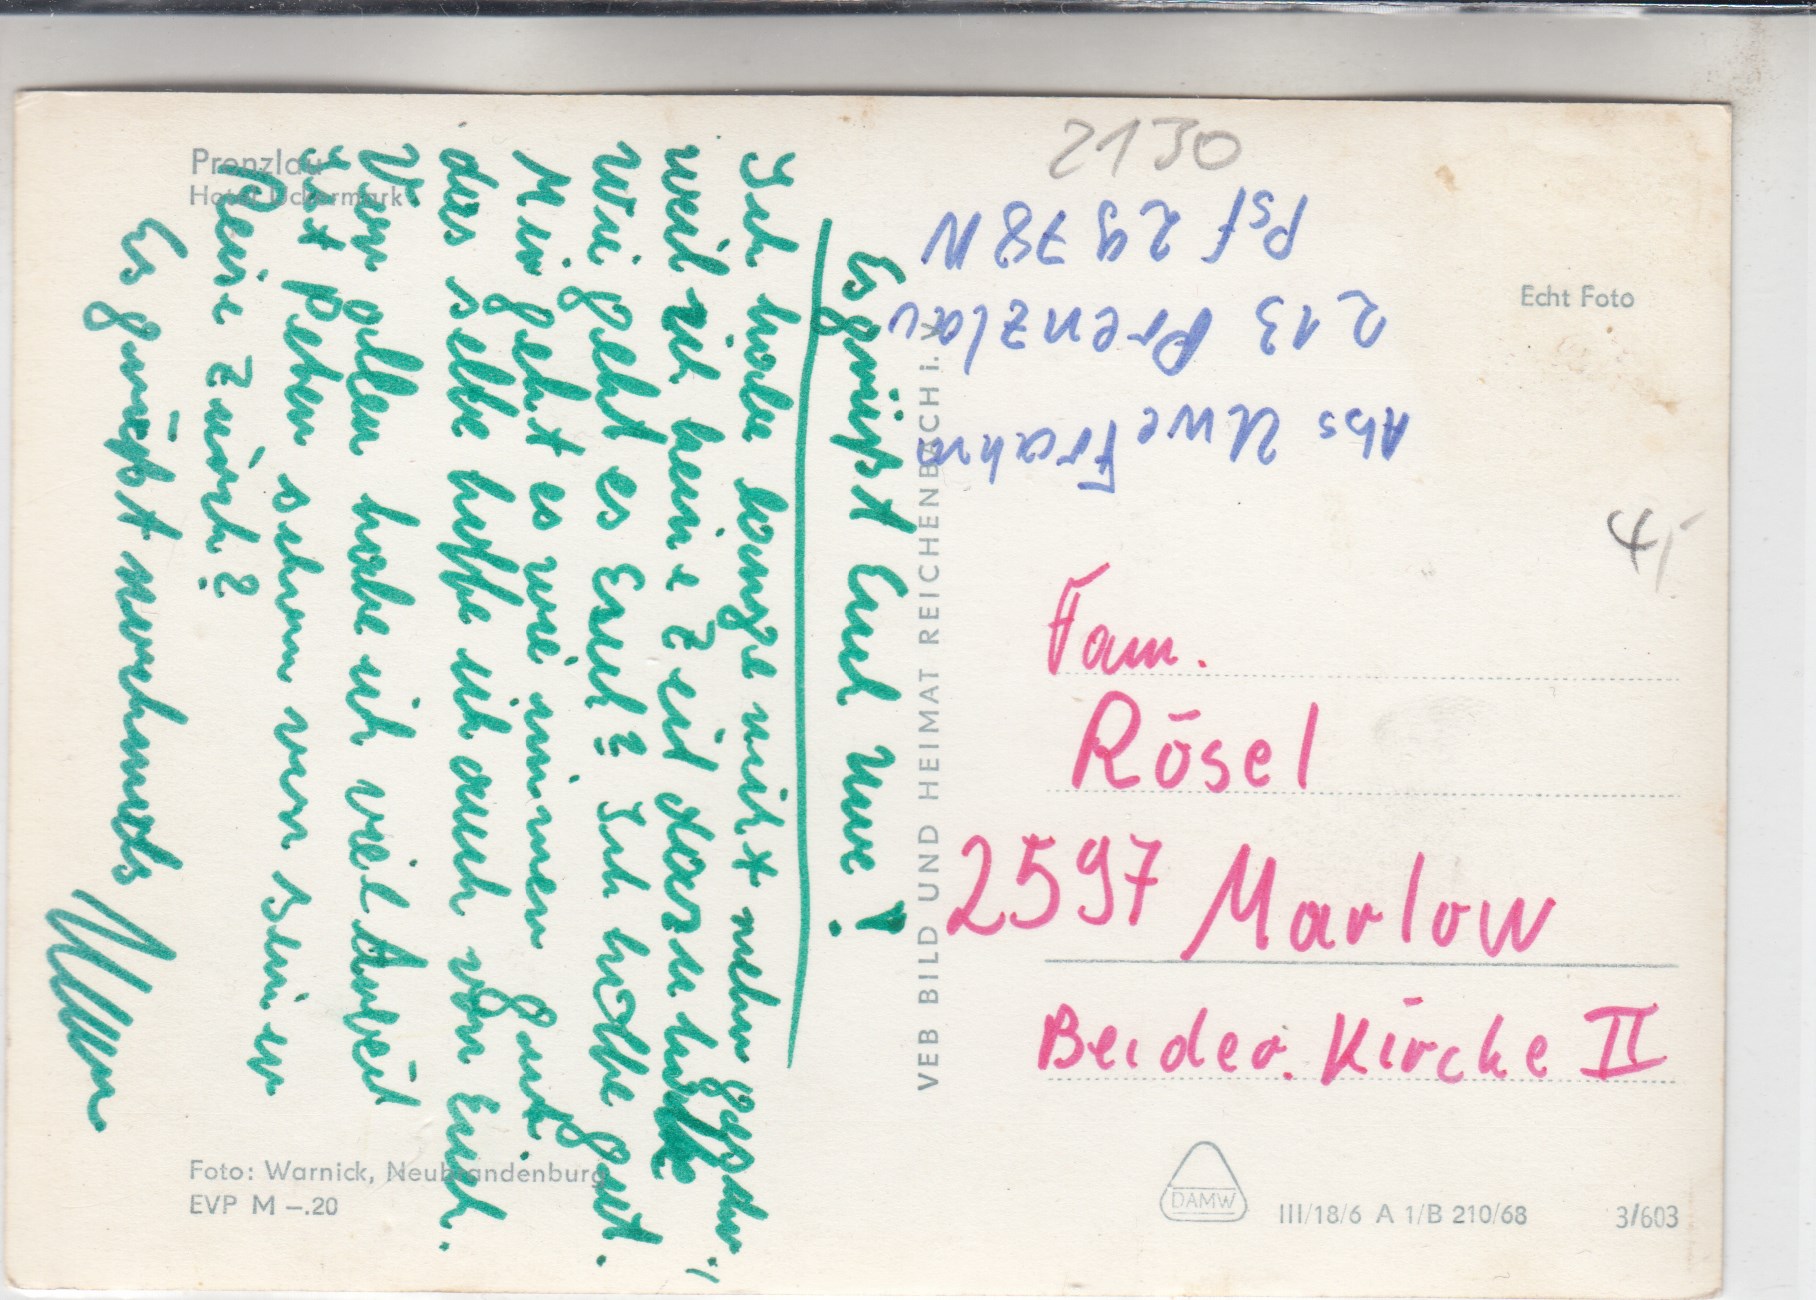 Prenzlau
Hotel Uckermark
Es grüßt Euch Uwe!
Ich habe lange nicht mehr geschr.,
weil ich keine Zeit dazu hatte
Wie geht es Euch? Ich hoffe gut.
Mir geht es wie immer gut,
das selbe hoffe ich auch von Euch.
Vor allem habe ich viel Arbeit
Ist Peter schon von seiner
Reise zurück?
Es grüßt nochmals
Uwe
Foto: Warnick, Neubrandenburg
EVP M –.20
VEB BILD UND HEIMAT REICHENBACH i. V.
2130
Abs Uwe Frahm
213 Prenzlau
Psf 2978N
Echt Foto
Fam.
Rösel
2597 Marlow
Bei der. Kirche II
DAMW
III/18/6 A 1/B 210/68
3/603